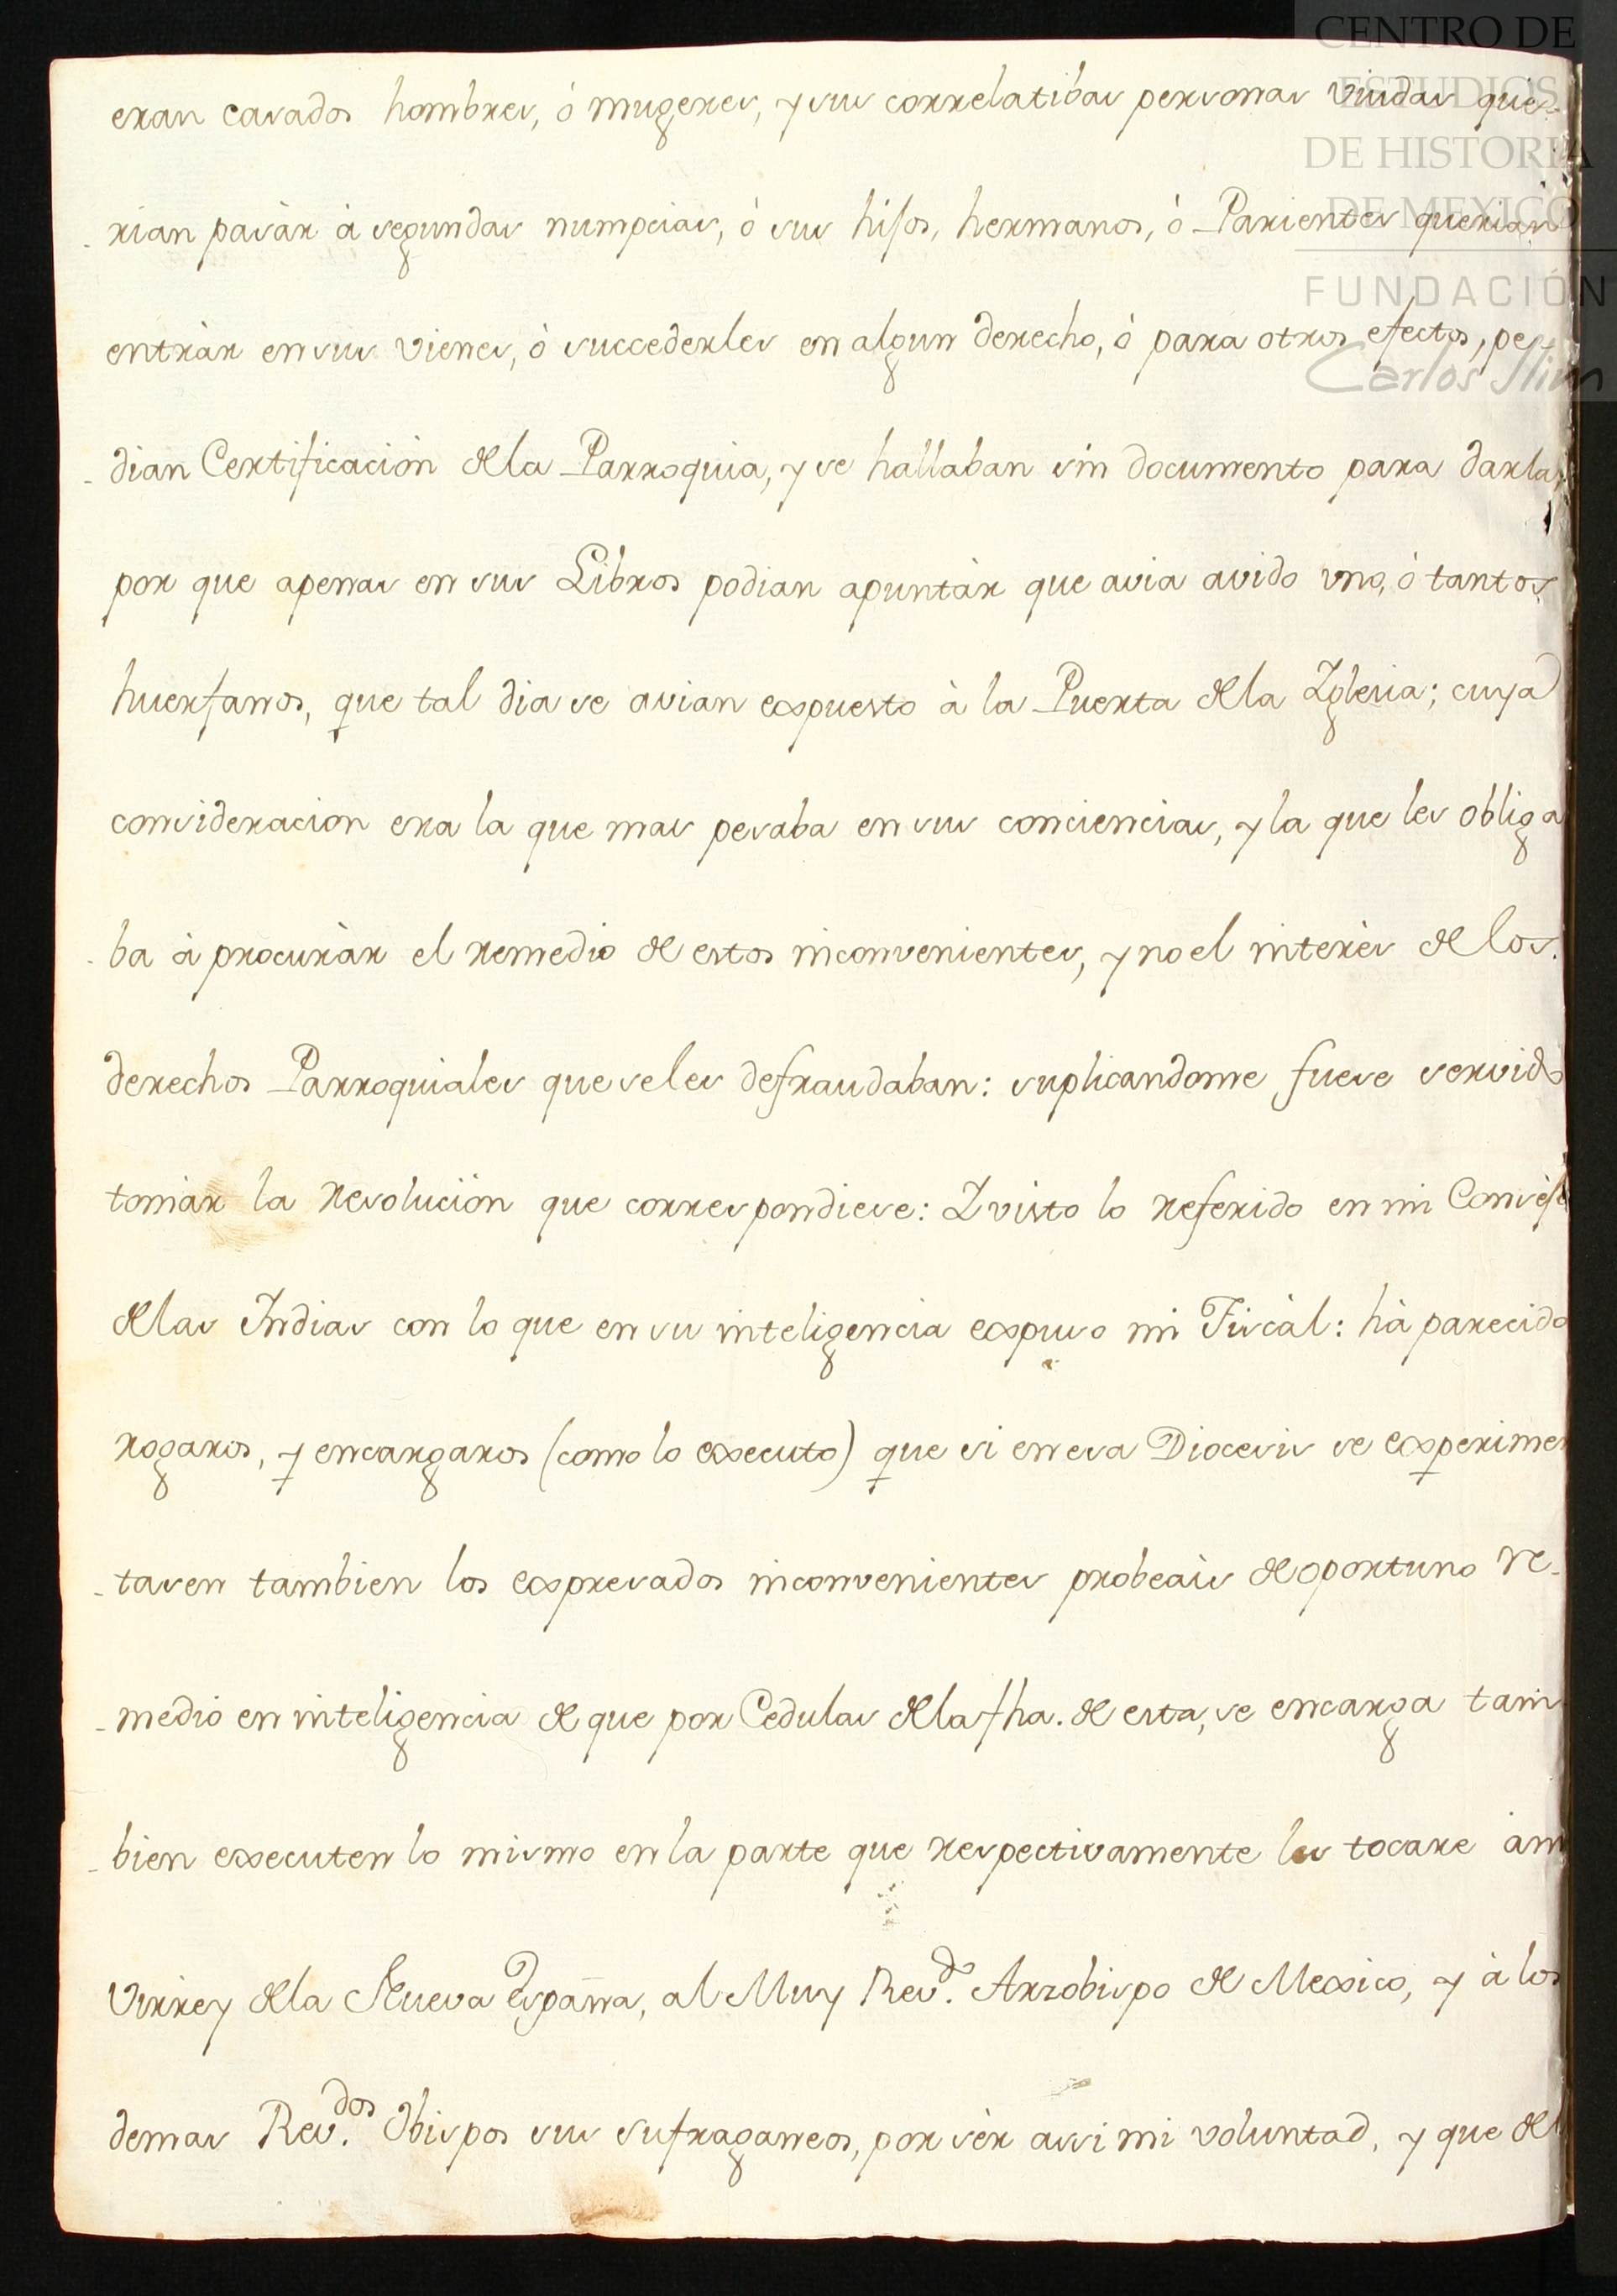 CENTRO DE
ESTUDIOS
DE HISTORIA
DE MEXICO
FUNDACIÓN
Carlos Slim
eran casados hombres, ó mugeres, y sus correlatibas personas viudas que-
-rian pasàr à segundas numpcias, ò sus hijos, hermanos, ò Parientes querian
entràr en sus vienes, ò succederles en algun derecho, ò para otros efectos, pe-
-dian Certificaciòn de la Parroquia, y se hallaban sin documento para darla,
por que apenas en sus Libros podian apuntàr que avia avido vno, ò tantos
huerfanos, que tal dia se avian expuesto à la Puerta de la Yglesia; cuya
consideracion era la que mas pesaba en sus conciencias, y la que les obliga
-ba à procuràr el remedio de estos inconvenientes, y no el interès de los
derechos Parroquiales que se les defraudaban: suplicandome fuese servido
tomàr la resoluciòn que correspondiese: Y visto lo referido en mi Consejo
de las Indias con lo que en su inteligencia expuso mi Fiscàl: hà parecido
rogaros, y encargaros (como lo executo) que si en esa Diocesis se experimen
-tasen tambien los expresados inconvenientes probeàis de oportuno re-
-medio en inteligencia de que por Cedulas de la fha. de esta, se encarga tam
-bien executen lo mismo en la parte que respectivamente les tocare à mi
Virrey de la Nueva España, al Muy Rev.do Arzobispo de Mexico, y à los
demas Rev.dos Obispos sus sufraganeos, por sèr assi mi voluntad, y que del